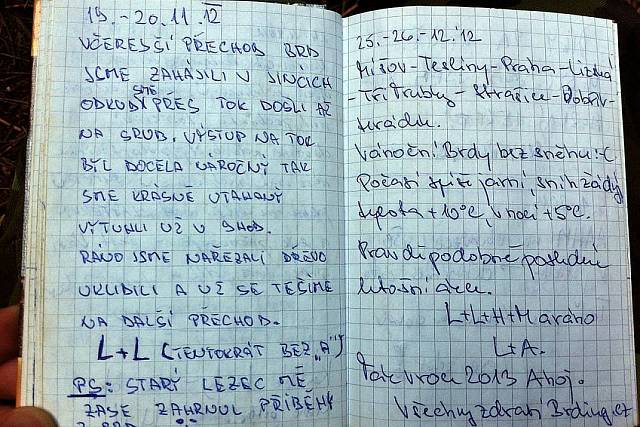 19.-20.11.12
VČEREJŠÍ PŘECHOD BRD
JSME ZAHÁJILI V JINCÍCH
ODKUD JSME PŘES TOK DOŠLI AŽ
NA SRUB. VÝSTUP NA TOK
BYL DOCELA NÁROČNÝ TAK
SME KRÁSNĚ UTAHANÝ
VYTUHLI UŽ V 9HOD.
RÁNO JSME NAŘEZALI DŘEVO
UKLIDILI A UŽ SE TEŠÍME
NA DALŠÍ PŘECHOD.
L+L (TENTOKRÁT BEZ „A")
PS: STARÝ LEZEC MĚ
ZASE ZAHRNUL PŘÍBĚHY
Z BRD
25.-26.-12.12
Míšov-Teslíny-Praha-Lizská
-Tři Trubky-Strašice-Dobřív-
Hrádek.
Vánoční Brdy bez sněhu :-(
Počasí spíše jarní, sníh žádný
teplota +10°C, v noci +5°C.
Pravděpodobně poslední
letošní akce.
L+L+H+H a ráno
L+A.
Tak v roce 2013 Ahoj.
Všechny zdraví Brding.cz